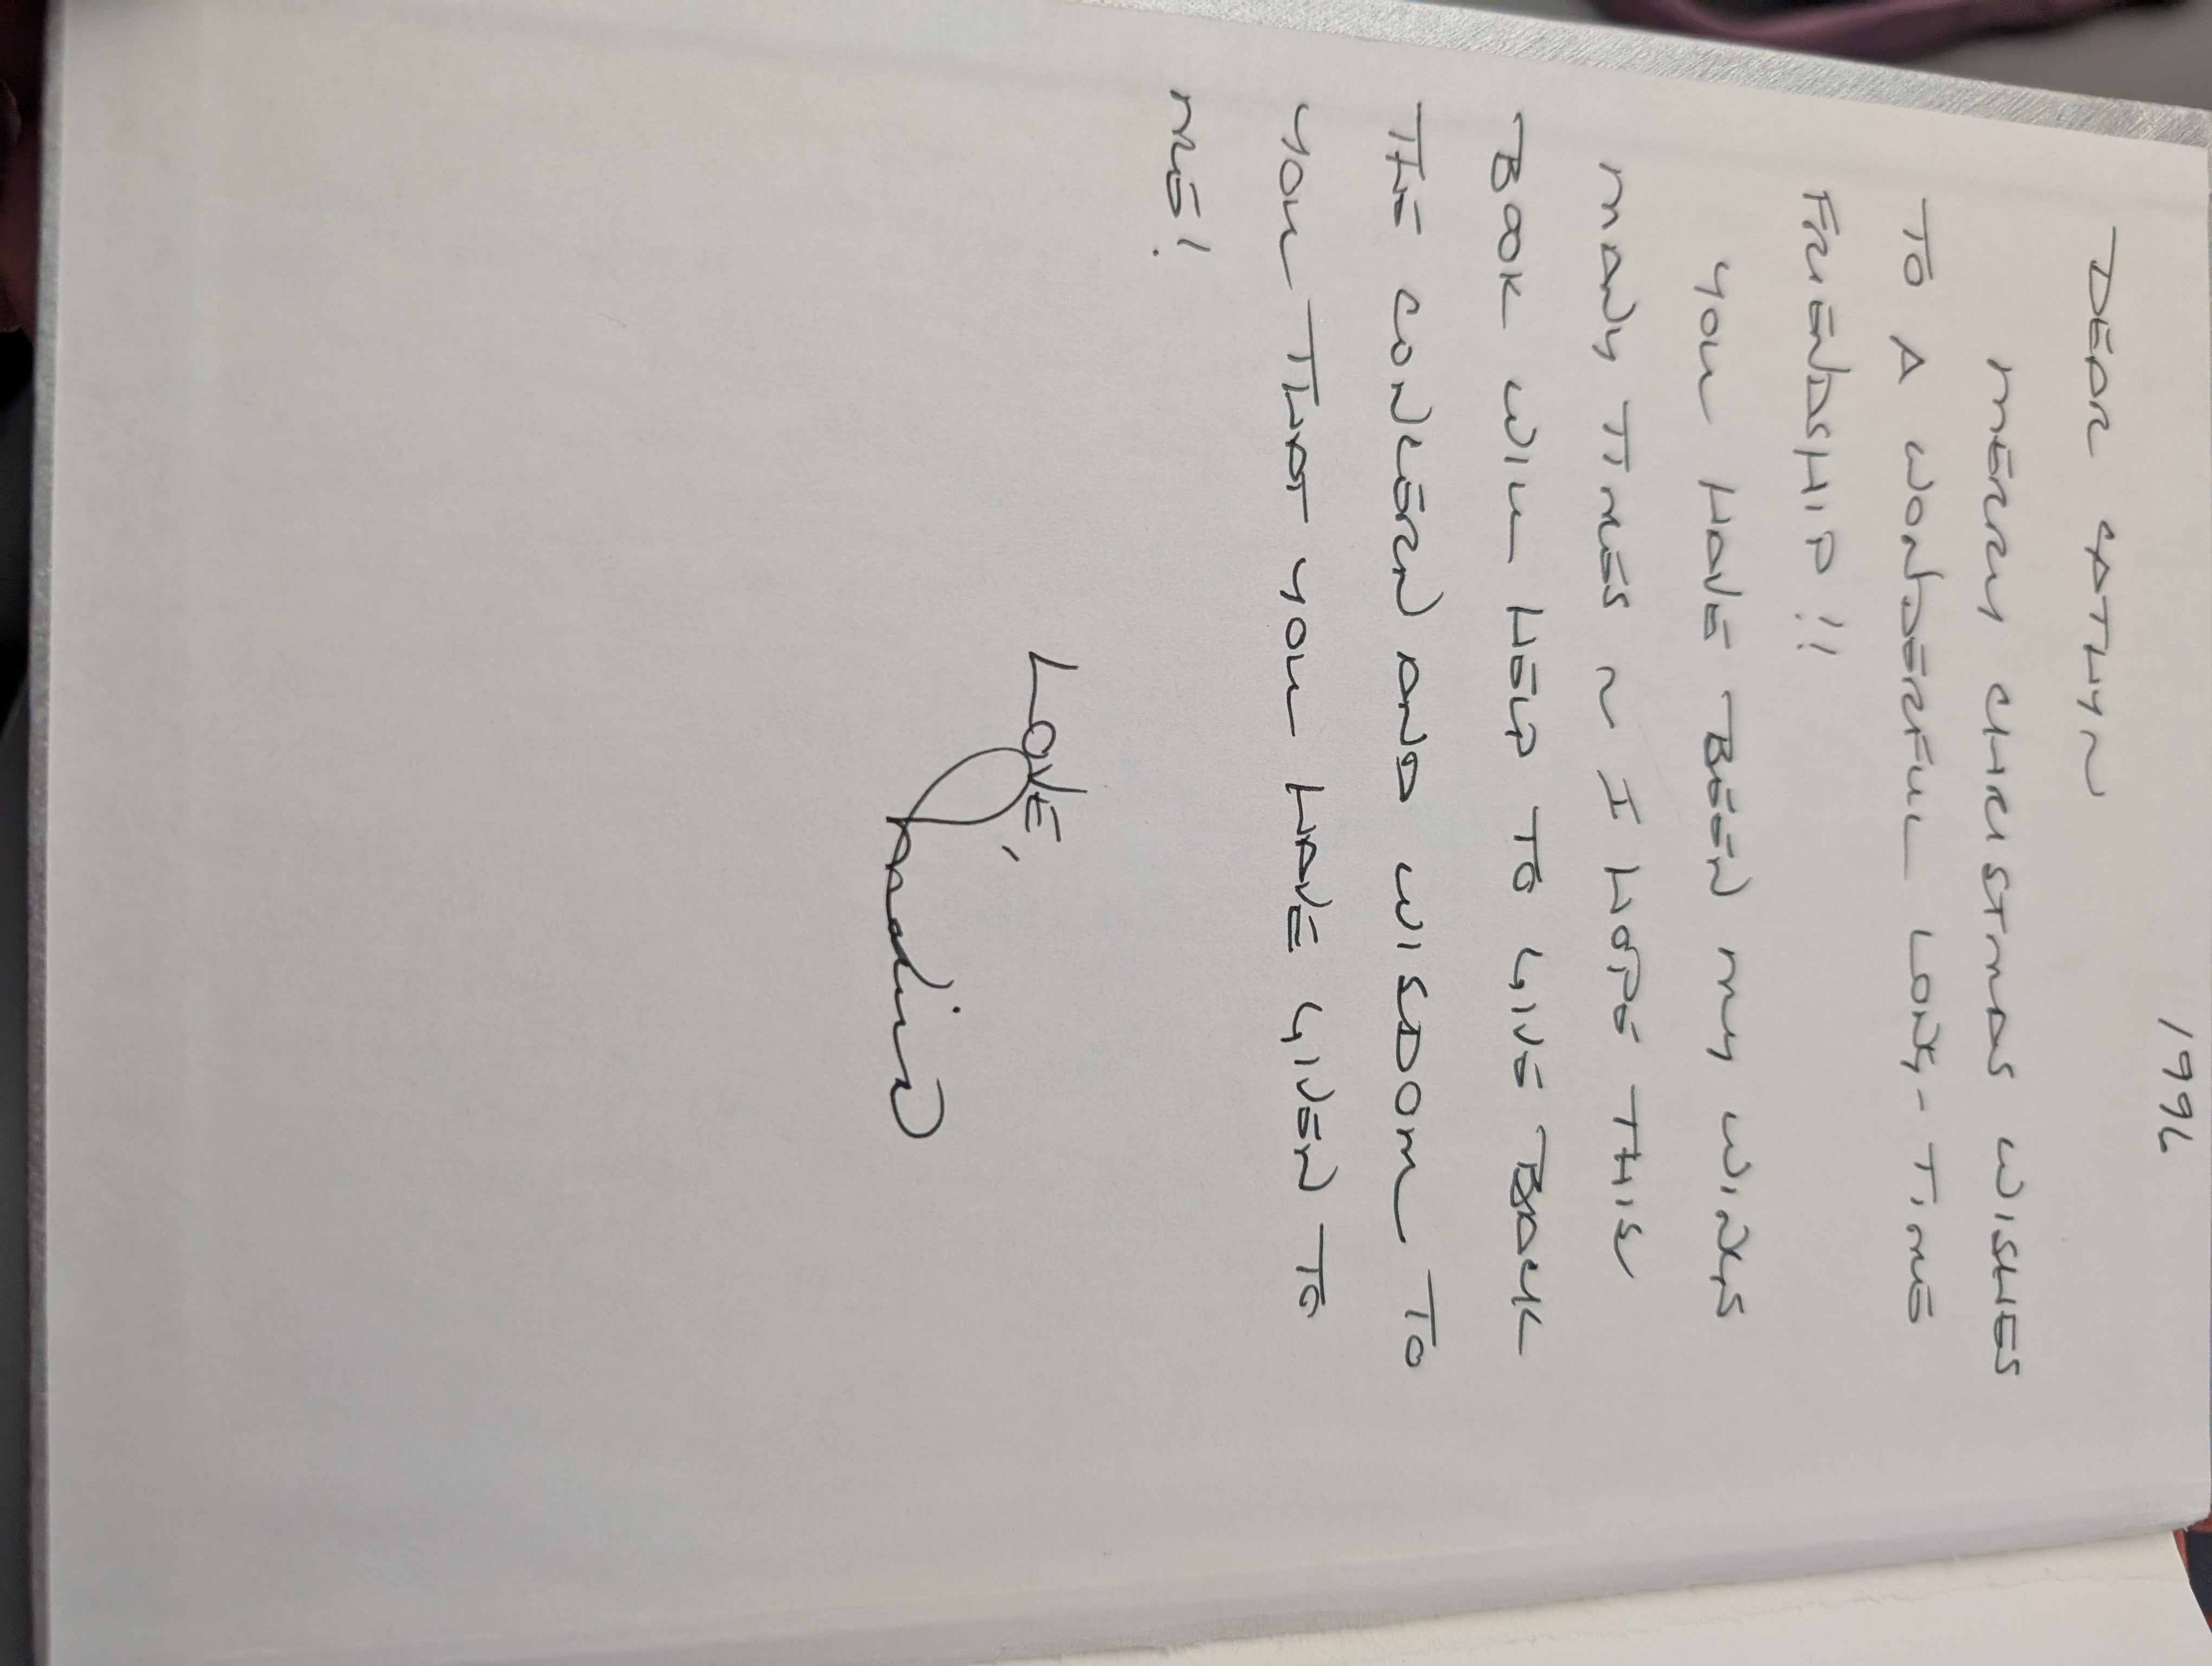 1996
DEAR CATHY ~
MERRY CHRISTMAS WISHES
TO A WONDERFUL LONG-TIME
FRIENDSHIP!!
YOU HAVE BEEN MY WINGS
MANY TIMES ~ I HOPE THIS
BOOK WILL HELP TO GIVE BACK
THE CONCERN AND WISDOM TO
YOU THAT YOU HAVE GIVEN TO
ME!
LOVE,